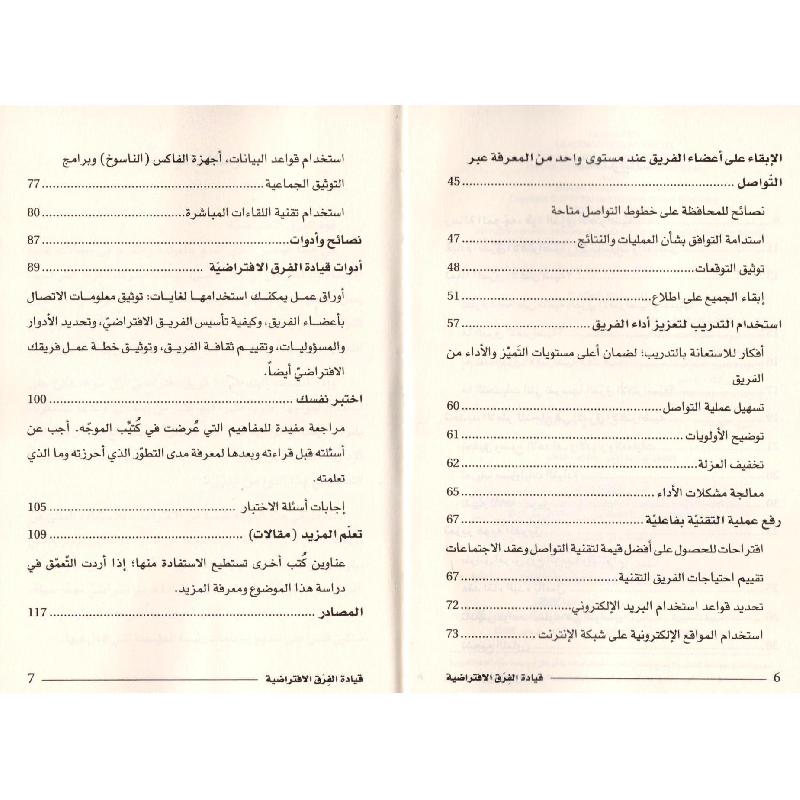 الإبقاء على أعضاء الفريق عند مستوى واحد من المعرفة عبر
التّواصل ........ 45
نصائح للمحافظة على خطوط التواصل متاحة
استدامة التوافق بشأن العمليات والنتائج ........ 47
توثيق التوقعات ........ 48
إبقاء الجميع على اطلاع ........ 51
استخدام التدريب لتعزيز أداء الفريق ........ 57
أفكار للاستعانة بالتدريب؛ لضمان أعلى مستويات التّميّز والأداء من
الفريق
تسهيل عملية التواصل ........ 60
توضيح الأولويات ........ 61
تخفيف العزلة ........ 62
معالجة مشكلات الأداء ........ 65
رفع عملية التقنية بفاعليّة ........ 67
اقتراحات للحصول على أفضل قيمة لتقنية التواصل وعقد الاجتماعات
تقييم احتياجات الفريق التقنية ........ 67
تحديد قواعد استخدام البريد الإلكتروني ........ 72
استخدام المواقع الإلكترونية على شبكة الإنترنت ........ 73
6 قيادة الفِرَق الافتراضية
استخدام قواعد البيانات، أجهزة الفاكس (الناسوخ) وبرامج
التوثيق الجماعية ........ 77
استخدام تقنية اللقاءات المباشرة ........ 80
نصائح وأدوات ........ 87
أدوات قيادة الفِرق الافتراضيّة ........ 89
أوراق عمل يمكنك استخدامها لغايات: توثيق معلومات الاتصال
بأعضاء الفريق، وكيفية تأسيس الفريق الافتراضيّ، وتحديد الأدوار
والمسؤوليات، وتقييم ثقافة الفريق، وتوثيق خطة عمل فريقك
الافتراضيّ أيضاً.
اختبر نفسك ........ 100
مراجعة مفيدة للمفاهيم التي عُرضت في كُتيِّب الموجّه. أجب عن
أسئلته قبل قراءته وبعدها لمعرفة مدى التطوّر الذي أحرزته وما الذي
تعلمته.
إجابات أسئلة الاختبار ........ 105
تعلّم المزيد (مقالات) ........ 109
عناوين كُتب أخرى تستطيع الاستفادة منها؛ إذا أردت التّعمّق في
دراسة هذا الموضوع ومعرفة المزيد.
المصادر ........ 117
قيادة الفِرَق الافتراضية 7